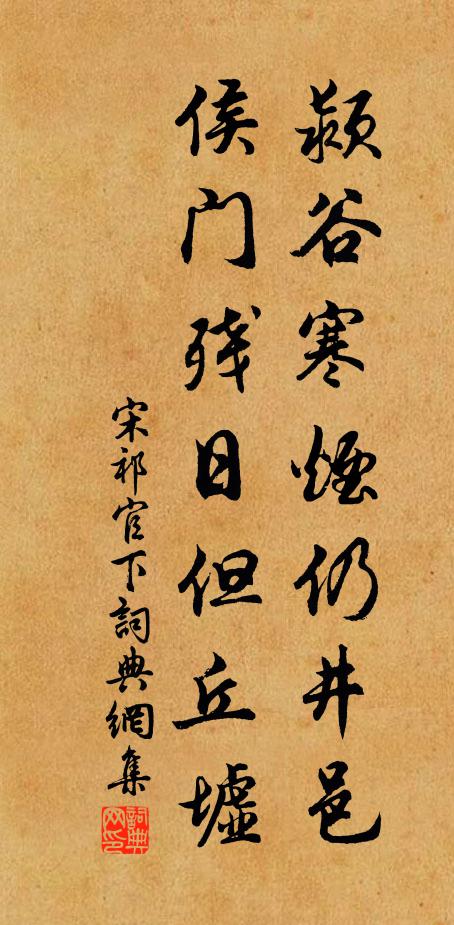 颍谷寒烟仍井邑
侯门残日但丘墟
宋祁官下詞典網集
詞典网印